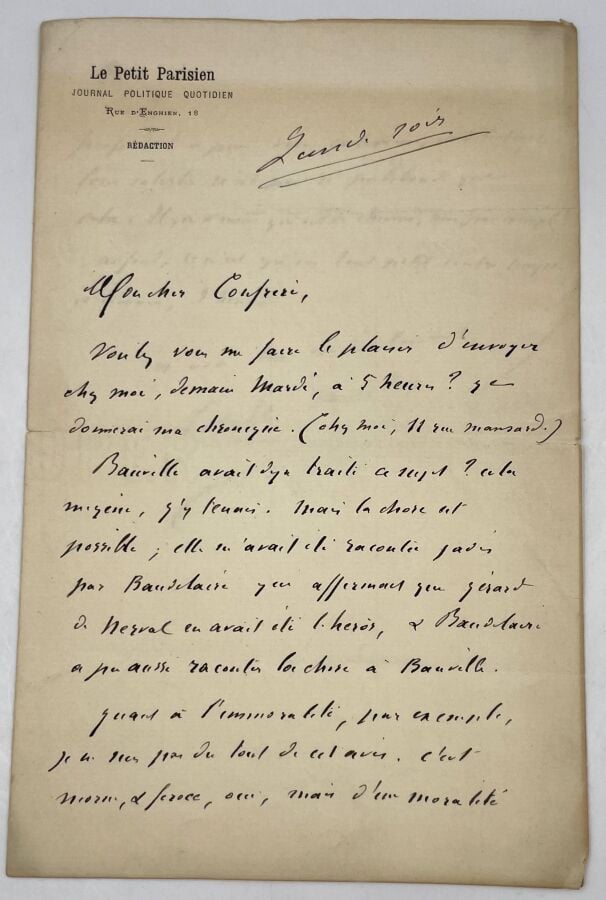 Le Petit Parisien
JOURNAL POLITIQUE QUOTIDIEN
Rue d'Enghien, 18
RÉDACTION
Lundi soir
Mon cher Confrère,
Voulez vous me faire le plaisir d'envoyer
chez moi, demain Mardi, à 5 heures? je
donnerai ma chronique. (chez moi, 11 rue mansard.)
Banville avait déjà traité ce sujet? cela
m'gêne, j'y tenais. mais la chose est
possible; elle m'avait été racontée jadis
par Baudelaire qui affirmait que gérard
de Nerval en avait été le héros, & Baudelaire
a pu aussi raconter la chose à Banville.
quant à l'immoralité, par exemple,
je ne suis pas du tout de cet avis. c'est
morne, & féroce, oui, mais d'une moralité